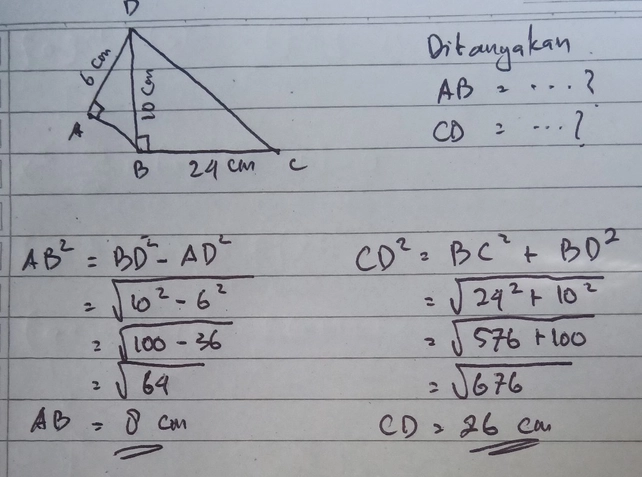 D
6 cm
10 cm
A
B
24 cm
C
Ditanyakan
AB = ....?
CD = ....?
AB² = BD² - AD²
= √10² - 6²
= √100 - 36
= √64
AB = 8 cm
CD² = BC² + BD²
= √24² + 10²
= √576 + 100
= √676
CD = 26 cm